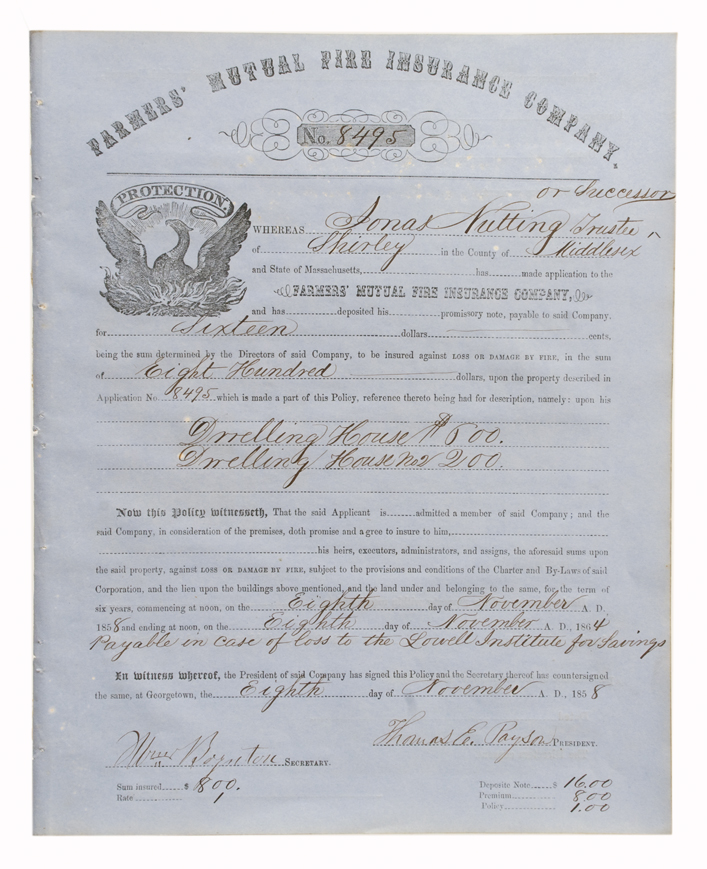 FARMERS' MUTUAL FIRE INSURANCE COMPANY.
No. 8495
PROTECTION.
or Successor
WHEREAS Jonas Nutting Trustee ^
of Shirley in the County of Middlesex
and State of Massachusetts, has made application to the
FARMERS' MUTUAL FIRE INSURANCE COMPANY,
and has deposited his promissory note, payable to said Company,
for Sixteen dollars cents,
being the sum determined by the Directors of said Company, to be insured against LOSS OR DAMAGE BY FIRE, in the sum
of Eight Hundred dollars, upon the property described in
Application No 8495 which is made a part of this Policy, reference thereto being had for description, namely: upon his
Dwelling House $600.
Dwelling House No2 200.
Now this Policy witnesseth, That the said Applicant is admitted a member of said Company; and the
said Company, in consideration of the premises, doth promise and agree to insure to him,
his heirs, executors, administrators, and assigns, the aforesaid sums upon
the said property, against LOSS OR DAMAGE BY FIRE, subject to the provisions and conditions of the Charter and By-Laws of said
Corporation, and the lien upon the buildings above mentioned, and the land under and belonging to the same, for the term of
six years, commencing at noon, on the Eighth day of November A. D.
1858 and ending at noon, on the Eighth day of November A. D., 1864
Payable in case of loss to the Lowell Institute for Savings
In witness whereof, the President of said Company has signed this Policy and the Secretary thereof has countersigned
the same, at Georgetown, the Eighth day of November A. D., 1858
Thomas E. Payson PRESIDENT.
Wm Boynton SECRETARY.
Sum insured $ 800.
Rate 1
Deposite Note $ 16.00
Premium 8.00
Policy 1.00